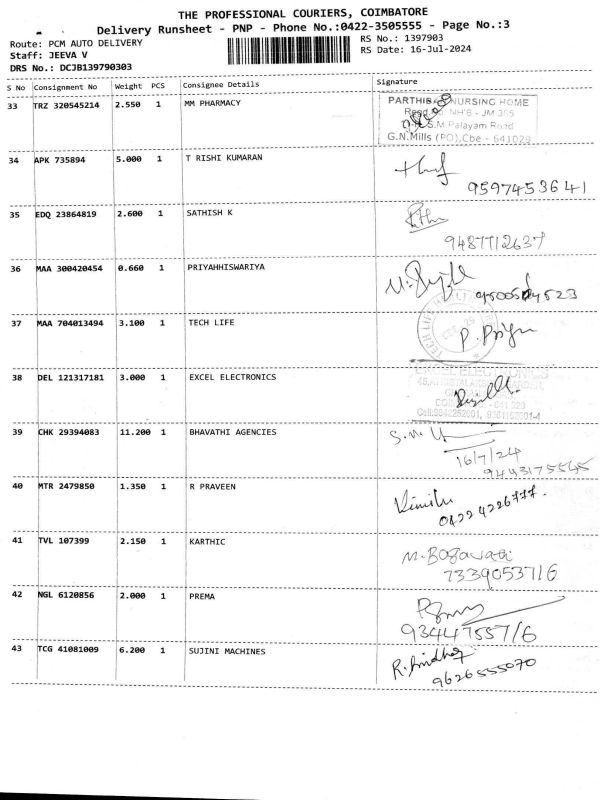 THE PROFESSIONAL COURIERS, COIMBATORE
Delivery Runsheet - PNP - Phone No.:0422-3505555 - Page No.:3
Route: PCM AUTO DELIVERY
RS No.: 1397903
Staff: JEEVA V
RS Date: 16-Jul-2024
DRS No.: DCJB139790303
S No Consignment No Weight PCS Consignee Details Signature
33 TRZ 320545214 2.550 1 MM PHARMACY
NURSING HOME
S.M.Palayam Road
G.N.Mills (PO),Cbe - 641029
34 APK 735894 5.000 1 T RISHI KUMARAN
9597453641
35 EDQ 23864819 2.600 1 SATHISH K
9487712637
36 MAA 300420454 0.660 1 PRIYAHHISWARIYA
37 MAA 704013494 3.100 1 TECH LIFE
TECH LIFE
P. Priya
38 DEL 121317181 3.000 1 EXCEL ELECTRONICS
EXCEL ELECTRONICS
39 CHK 29394083 11.200 1 BHAVATHI AGENCIES
16/7/24
9443175545
40 MTR 2479850 1.350 1 R PRAVEEN
0422 4226777.
41 TVL 107399 2.150 1 KARTHIC
M. Bagavathi
7339053716
42 NGL 6120856 2.000 1 PREMA
9344755716
43 TCG 41081009 6.200 1 SUJINI MACHINES
9626555070